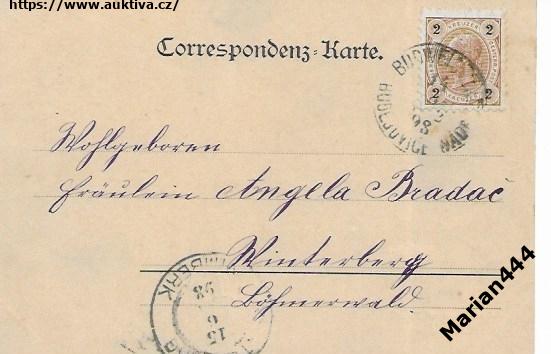 https://www.auktiva.cz/
Correspondenz-Karte.
2 KREUZER 2
2 2
BUDWEIS
BUDĚJOVICE NÁDR
98
Wohlgeboren
Fräulein Angela Bradač
Winterberg
Böhmerwald.
BERK
98
6
15
Marian444